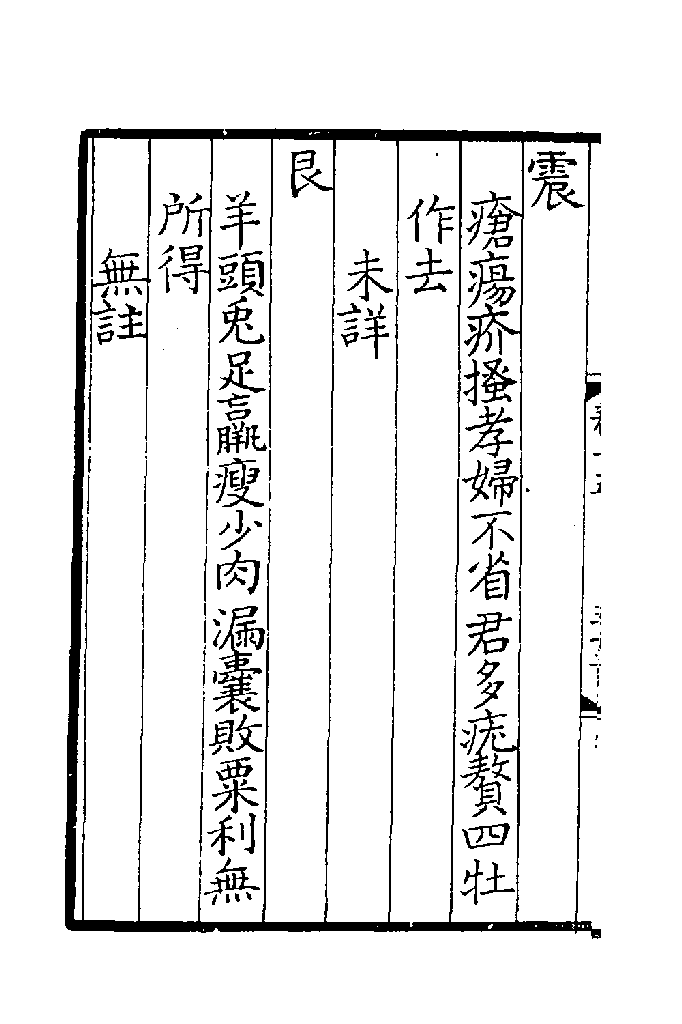 震
瘡瘍疥搔孝婦不省君多疣贅四牡
作去
未詳
艮
羊頭兎足羸瘦少肉漏囊敗粟利無
所得
無註